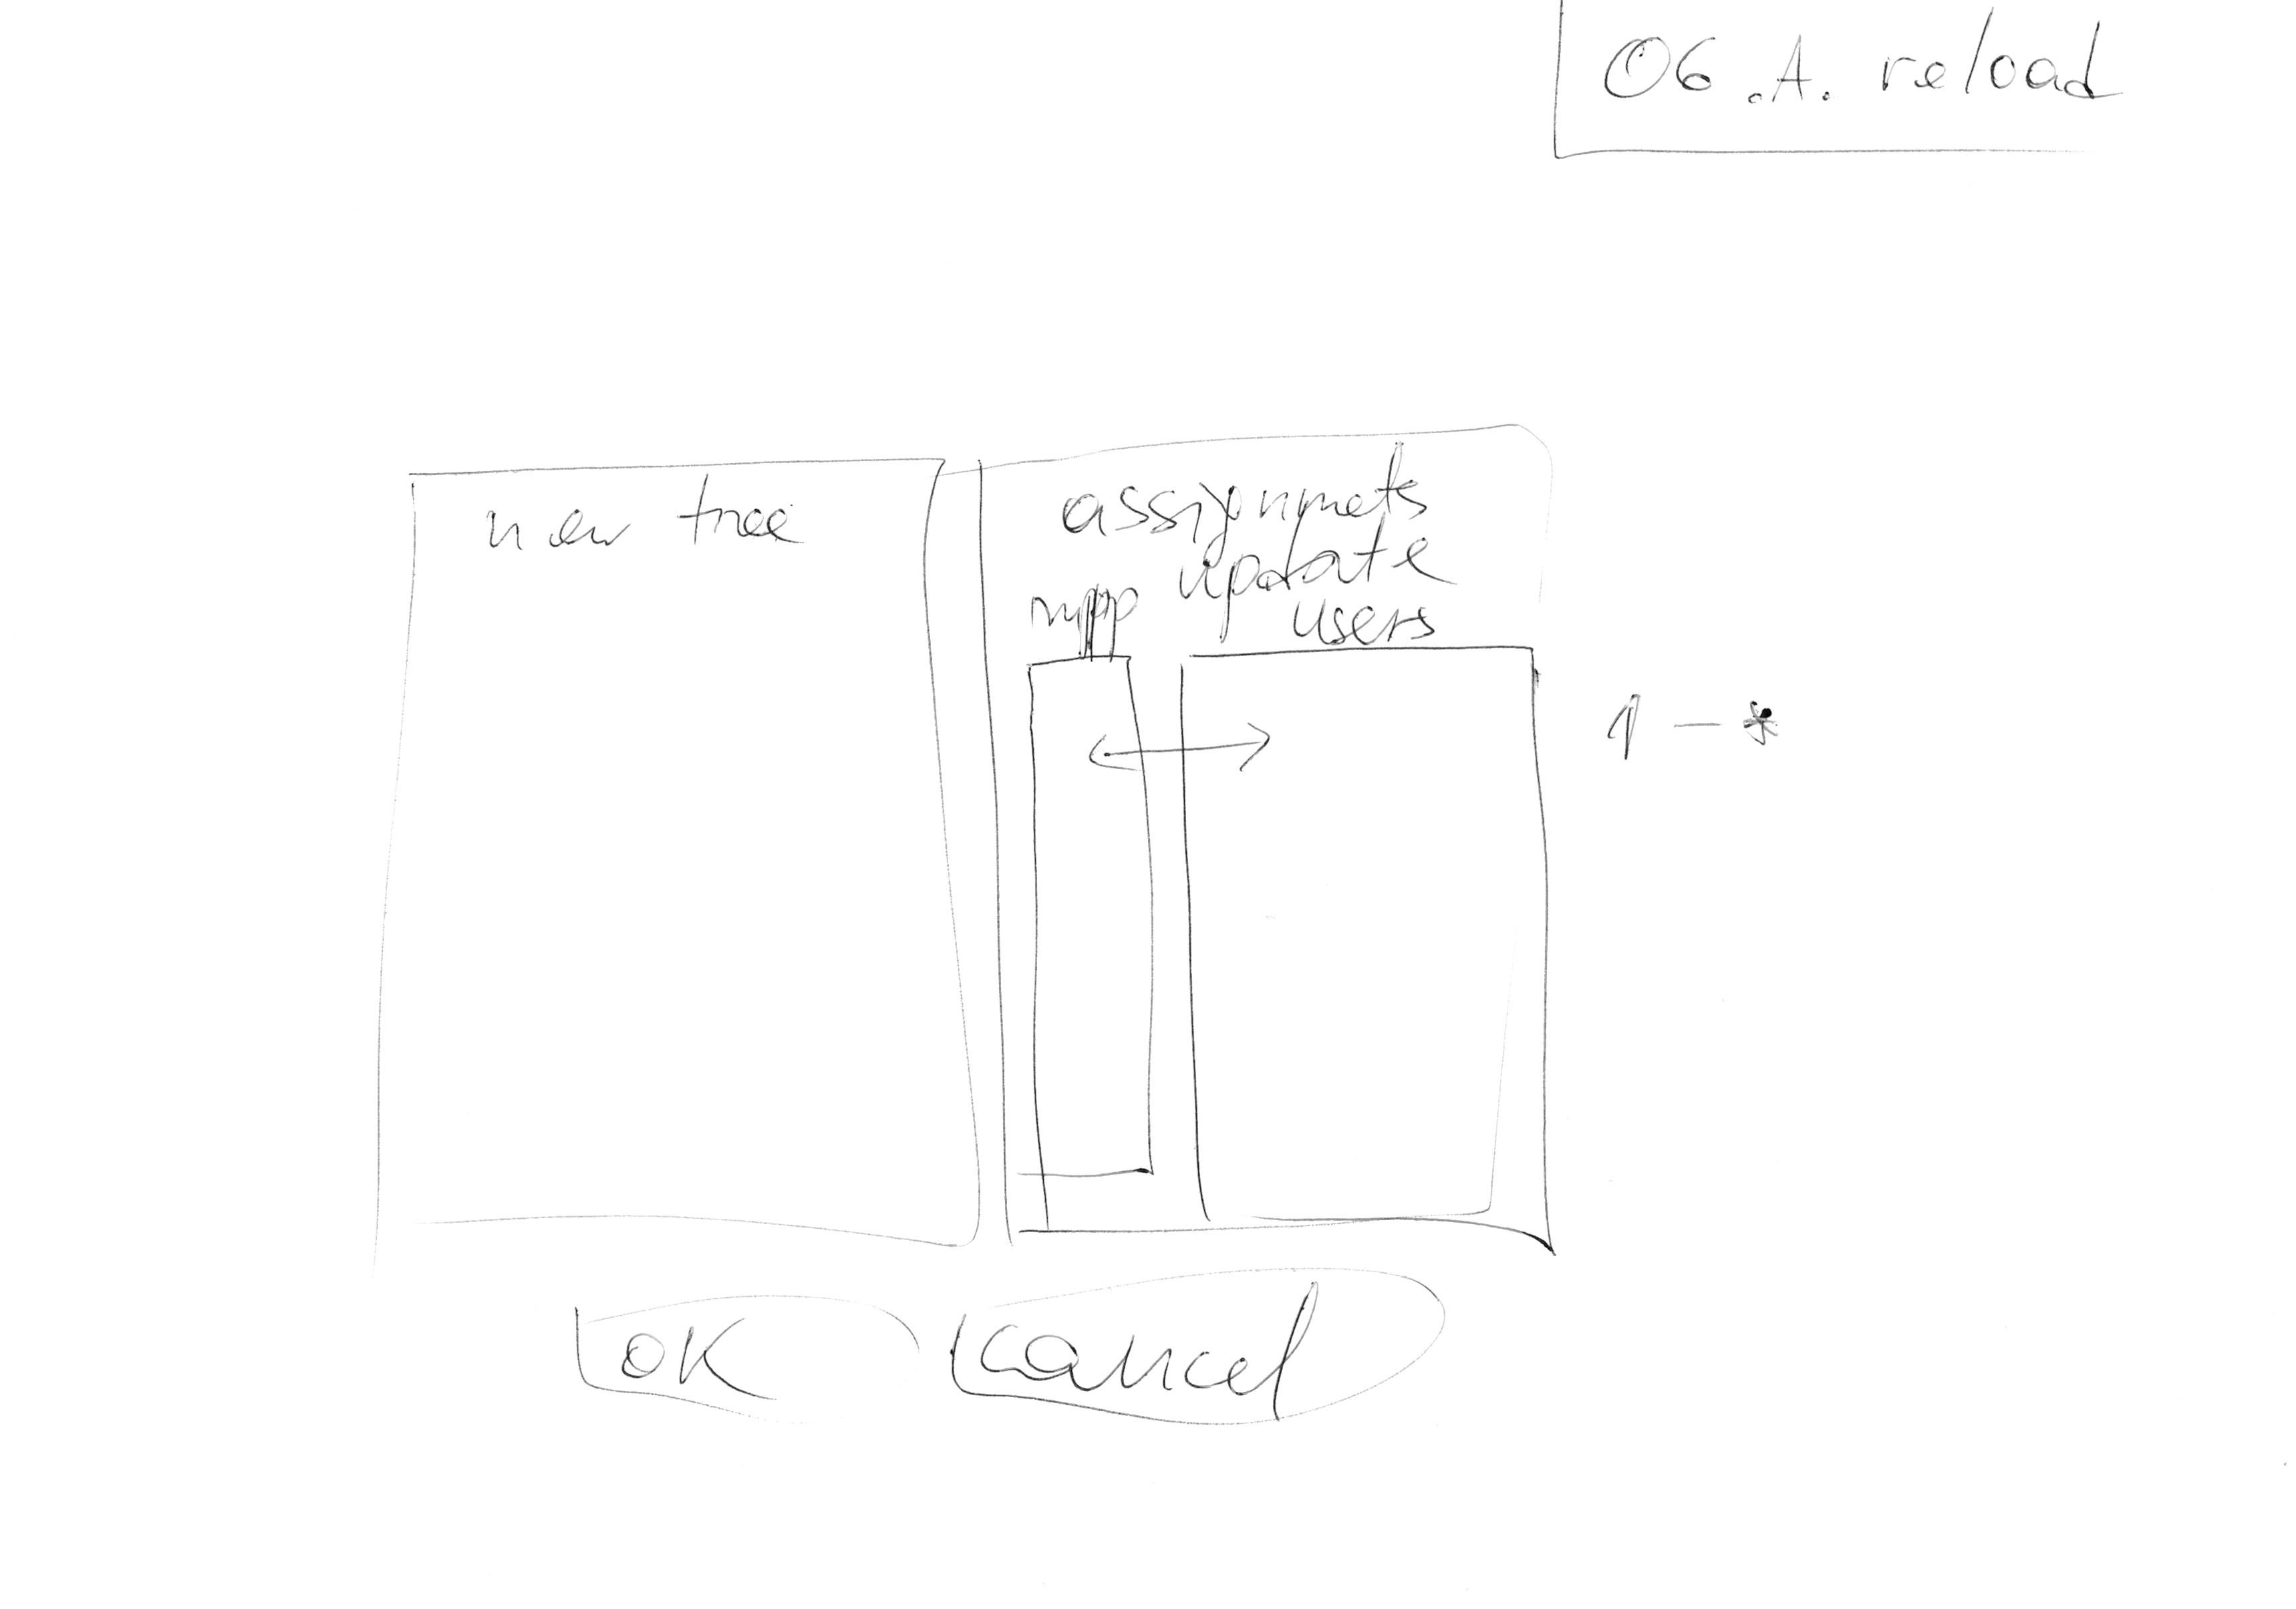 06.A. reload
new tree
assignmets
update
mpp
users
1 - *
OK
cancel